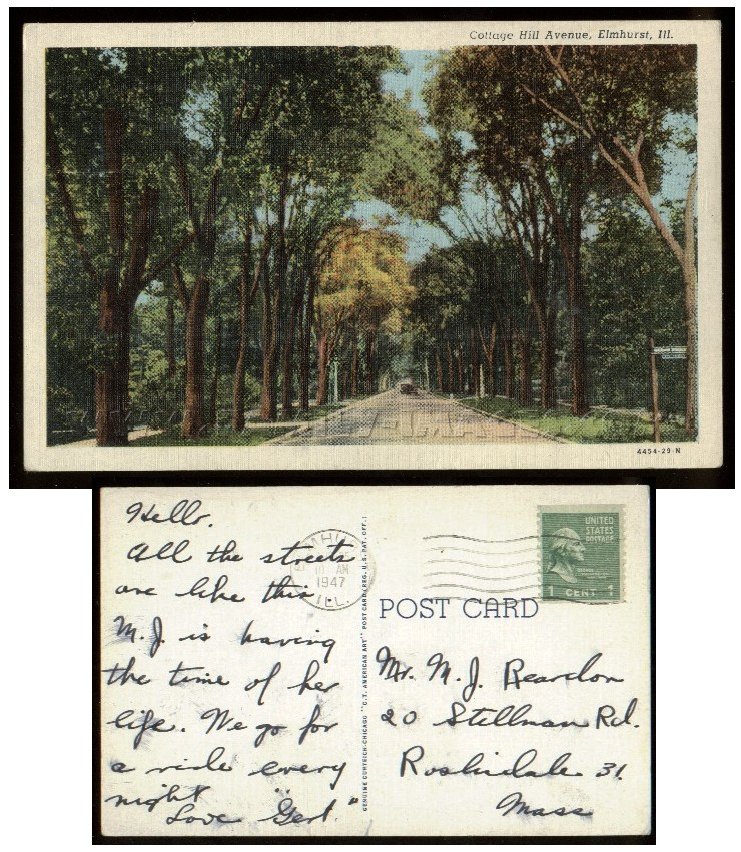 Cottage Hill Avenue, Elmhurst, Ill.
4454-29-N
Hello.
All the streets
are like this.
M. J. is having
the time of her
life. We go for
a ride every
night
Love "Gert."
11 AM
1947
ILL.
GENUINE CURTEICH-CHICAGO "C.T. AMERICAN ART" POST CARD (REG. U.S. PAT. OFF.)
UNITED
STATES
POSTAGE
1 CENT 1
POST CARD
Mr. M. J. Reardon
20 Stellman Rd.
Roslindale 31.
Mass